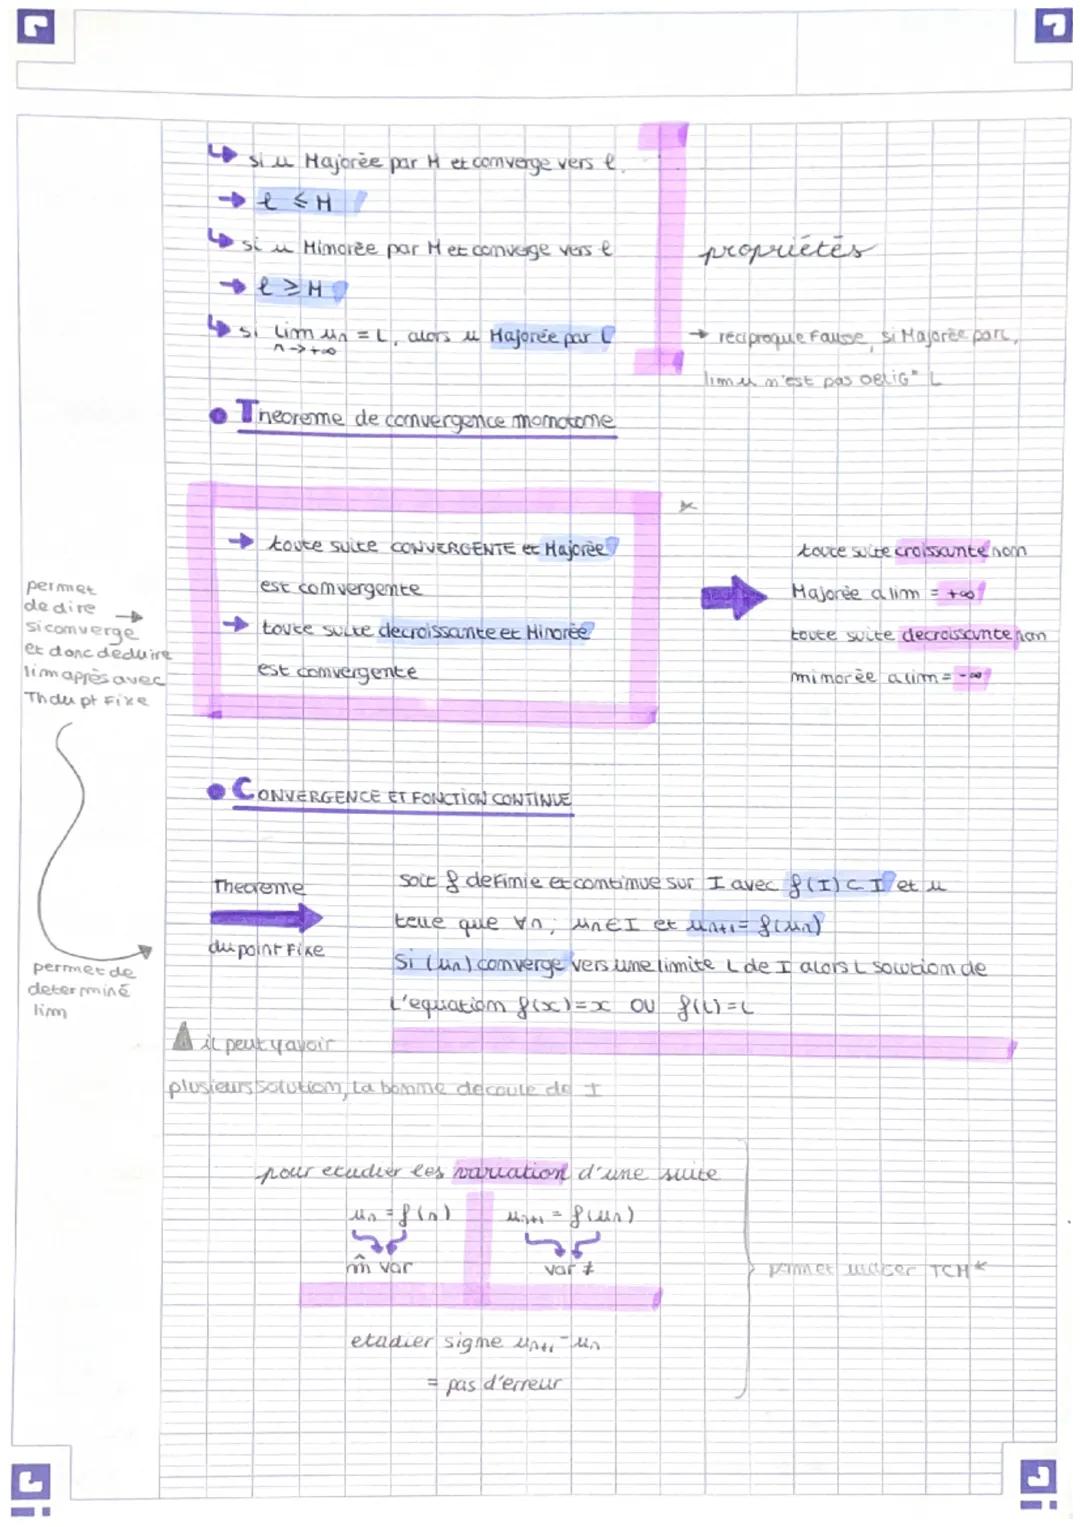 si u Majorée par M et converge vers l.
l ≤ M
si u Minorée par M et converge vers l
l ≥ M
propriétés
si lim un = L, alors u Majorée par L
n→+∞
→ réciproque Fausse, si Majorée par L,
lim u n'est pas OBLIG° L
Theoreme de convergence monotone
*
→ toute suite CONVERGENTE et Majorée
est convergente
→ toute suite decroissante et Minorée
est convergente
toute suite croissante non
Majorée a lim = +∞
toute suite decroissante non
minorée a lim = -∞
permet
de dire →
si converge
et donc deduire
lim après avec
Th du pt Fixe
CONVERGENCE ET FONCTION CONTINUE
Theoreme
du point Fixe
soit f definie et continue sur I avec f(I) ⊂ I et u
telle que ∀n, un ∈ I et un+1 = f(un)
Si (un) converge vers une limite L de I alors L solution de
L'equation f(x)=x OU f(L)=L
permet de
determiné
lim
il peut y avoir
plusieurs solution, La bonne decoule de I
pour etudier les variation d'une suite
un = f(n) un+1 = f(un)
m̂ var var ≠
permet utiliser TCM*
etudier signe un+1 - un
= pas d'erreur